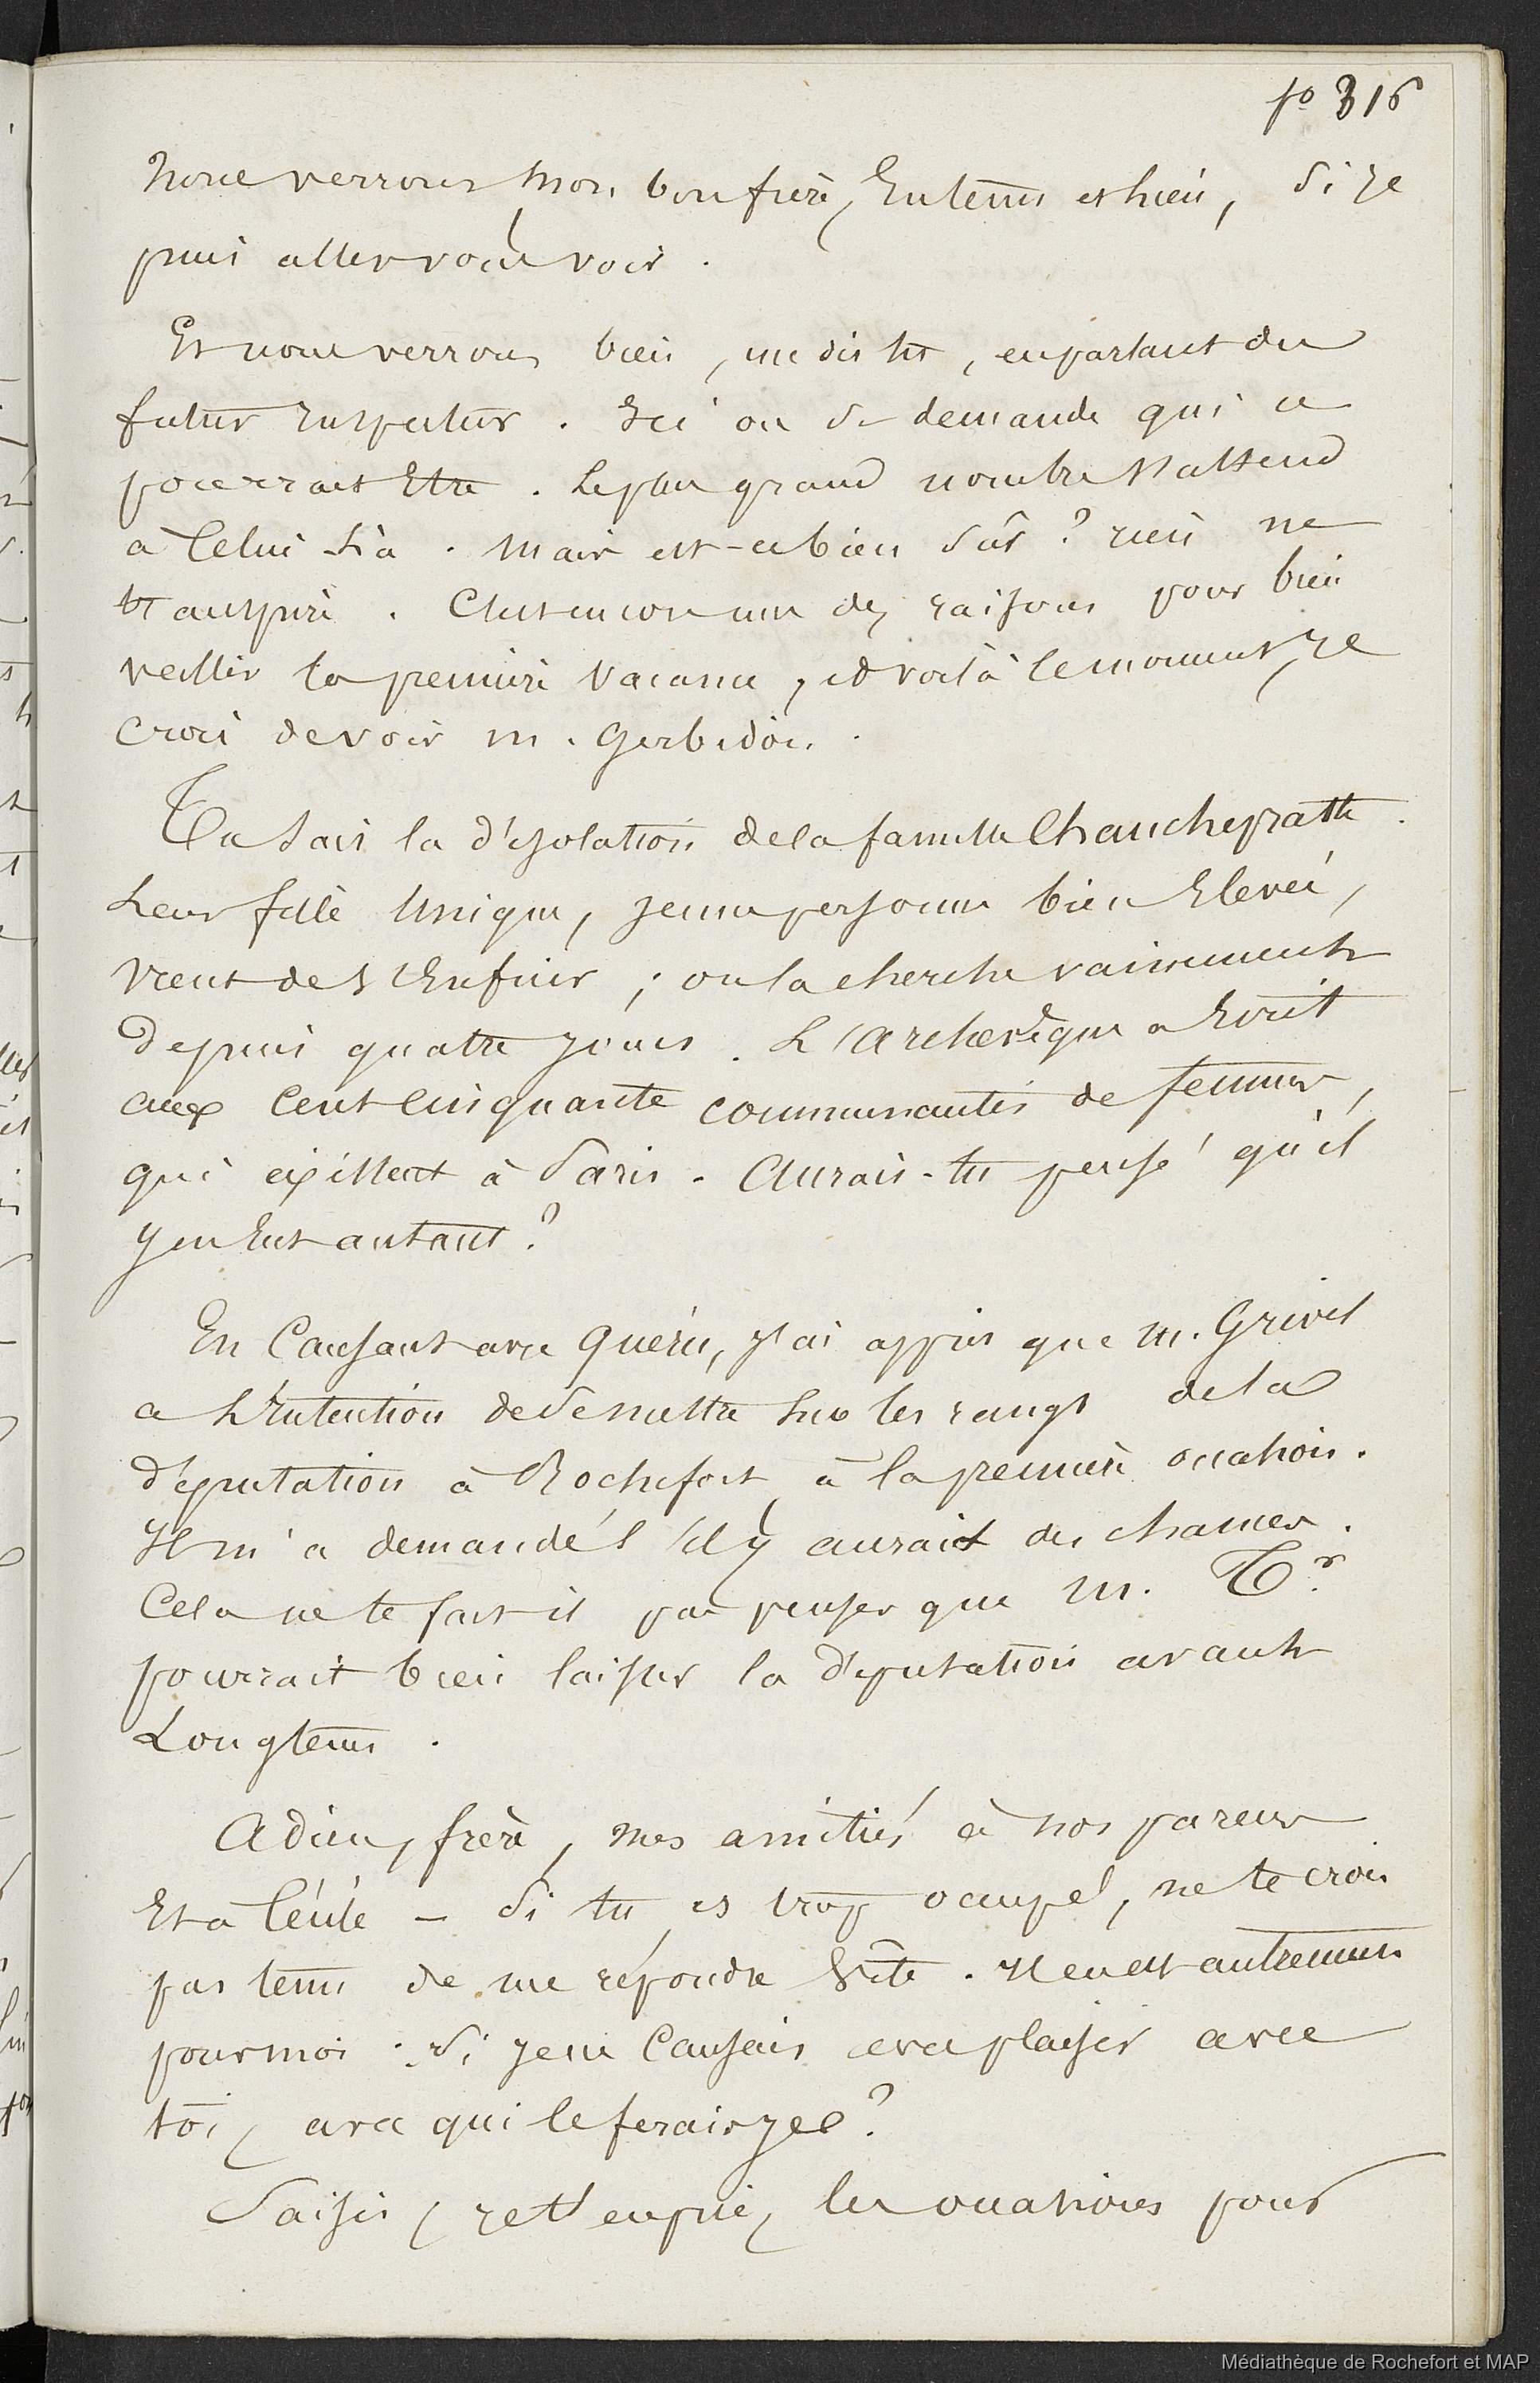 fo 316
Nous verrons mon bon frère, en tems et lieu, si je
puis aller vous voir.
Et nous verrons bien, me dis tu, en parlant du
futur inspecteur. Ici on se demande qui ce
pourrait être. Le plus grand nombre s'attend
à celui là. Mais est-ce bien sûr? rien ne
transpire. C'est encore une des raisons pour bien
veiller la première vacance, et voilà le moment, je
crois de voir m. Gerbidon.
Tu sais la désolation de la famille Chaucheprat.
Leur fille unique, jeune personne bien élevée,
vient de s'enfuir; on la cherche vainement
depuis quatre jours. L'archevêque a écrit
aux cent cinquante communautés de femmes,
qui existent à Paris. Aurais-tu pensé qu'il
y en eut autant?
En causant avec Guérin, j'ai appris que m. Grivel
a l'intention de se mettre sur les rangs de la
députation à Rochefort, à la première occasion.
Il m'a demandé s'il y aurait des chances.
Cela ne te fait il pas penser que m. Tr
pourrait bien laisser la députation avant
longtems.
Adieu, frère, mes amitiés à nos parens
et à Cécile - Si tu es trop occupé, ne te crois
pas tenu de me répondre vite. Il en est autrement
pour moi: si je ne causais avec plaisir avec
toi, avec qui le ferais je?
Saisis, je t'en prie, les occasions pour
Médiathèque de Rochefort et MAP